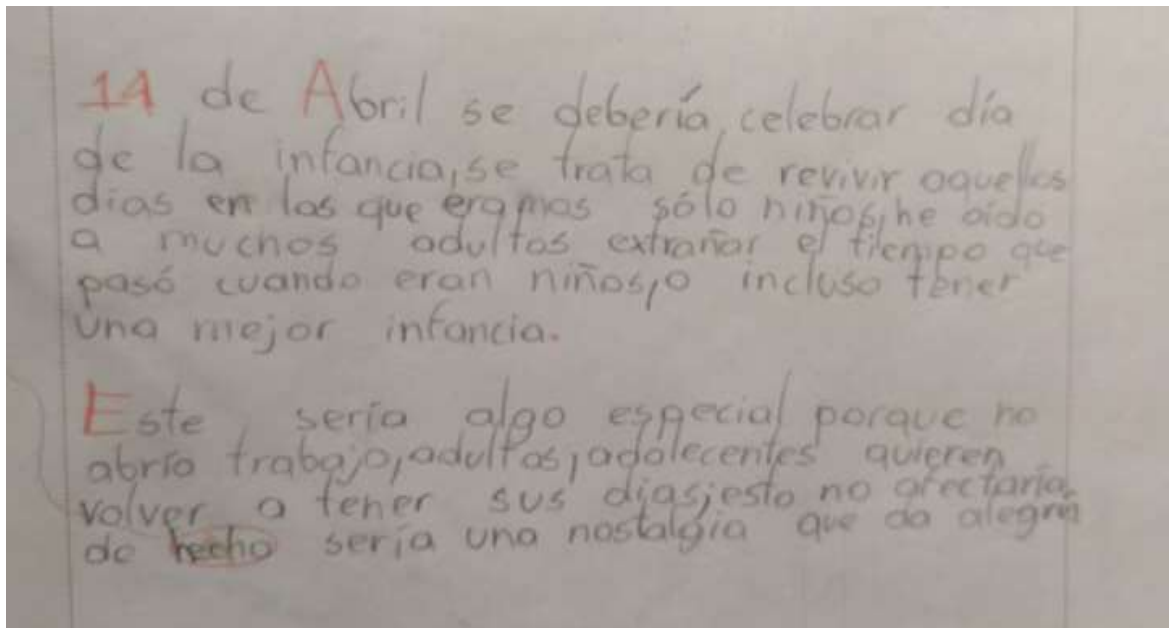 14 de Abril se debería, celebrar día
de la infancia, se trata de revivir aquellos
dias en los que eramos sólo niños, he oído
a muchos adultos extrañar el tiempo que
pasó cuando eran niños, o incluso tener
una mejor infancia.
Este sería algo especial porque no
abría trabajo, adultos, adolecentes quieren
volver a tener sus dias, esto no afectaría,
de hecho sería una nostalgia que da alegría